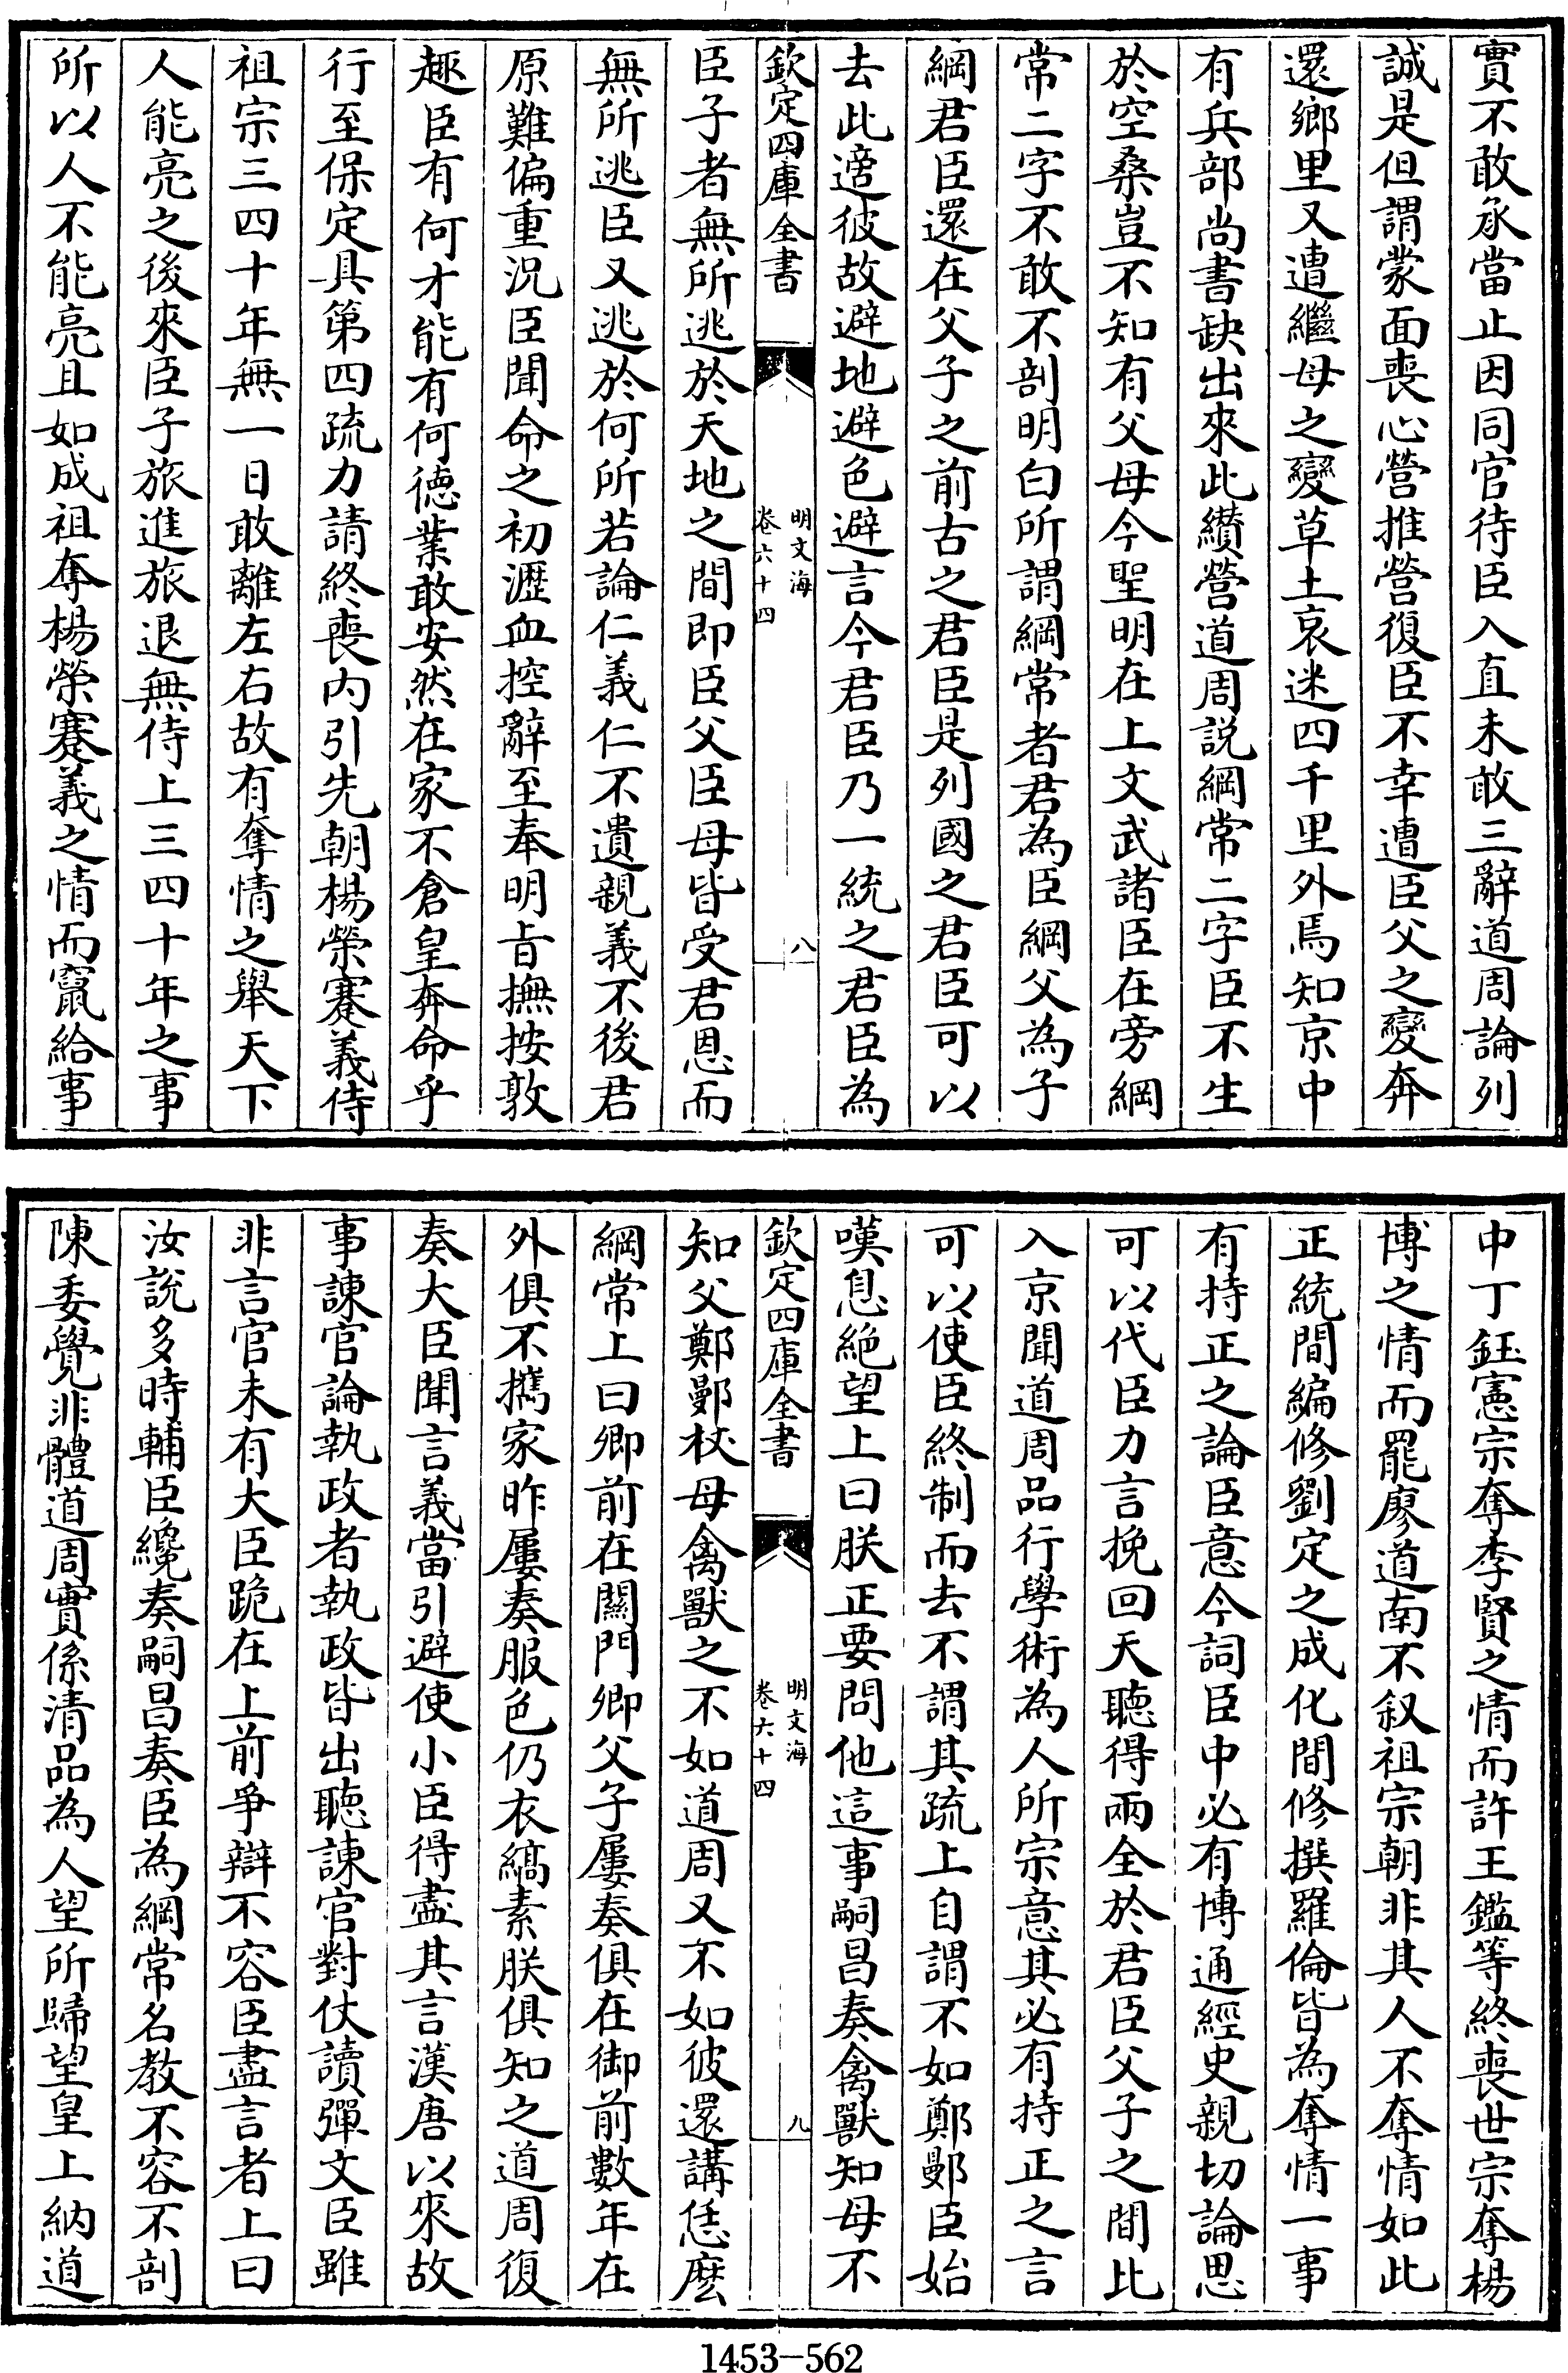 實不敢承當止因同官待臣入直未敢三辭道周論列
誠是但謂蒙面喪心營推營復臣不幸遭臣父之變奔
還鄉里又遭繼母之變草土哀迷四千里外焉知京中
有兵部尚書缺出來此纘營道周説綱常二字臣不生
於空桑豈不知有父母今聖明在上文武諸臣在旁綱
常二字不敢不剖明白所謂綱常者君為臣綱父為子
綱君臣還在父子之前古之君臣是列國之君臣可以
去此適彼故避地避色避言今君臣乃一統之君臣為
欽定四庫全書
明文海
卷六十四
八
臣子者無所逃於天地之間即臣父臣母皆受君恩而
無所逃臣又逃於何所若論仁義仁不遺親義不後君
原難偏重況臣聞命之初瀝血控辭至奉明旨撫按敦
趣臣有何才能有何德業敢安然在家不倉皇奔命乎
行至保定具第四疏力請終喪内引先朝楊榮蹇義侍
祖宗三四十年無一日敢離左右故有奪情之舉天下
人能亮之後來臣子旅進旅退無侍上三四十年之事
所以人不能亮且如成祖奪楊榮蹇義之情而竄給事
中丁鈺憲宗奪李賢之情而許王鑑等終喪世宗奪楊
博之情而罷廖道南不叙祖宗朝非其人不奪情如此
正統間編修劉定之成化間修撰羅倫皆為奪情一事
有持正之論臣意今詞臣中必有博通經史親切論思
可以代臣力言挽回天聽得兩全於君臣父子之間比
入京聞道周品行學術為人所宗意其必有持正之言
可以使臣終制而去不謂其疏上自謂不如鄭鄤臣始
嘆息絶望上曰朕正要問他這事嗣昌奏禽獸知母不
欽定四庫全書
明文海
卷六十四
九
知父鄭鄤杖母禽獸之不如道周又不如彼還講恁麽
綱常上曰卿前在關門卿父子屢奏俱在御前數年在
外俱不攜家昨屢奏服色仍衣縞素朕俱知之道周復
奏大臣聞言義當引避使小臣得盡其言漢唐以來故
事諫官論執政者執政皆出聽諫官對仗讀彈文臣雖
非言官未有大臣跪在上前爭辯不容臣盡言者上曰
汝説多時輔臣纔奏嗣昌奏臣為綱常名教不容不剖
陳委覺非體道周實係清品為人望所歸望皇上納道
1453-562